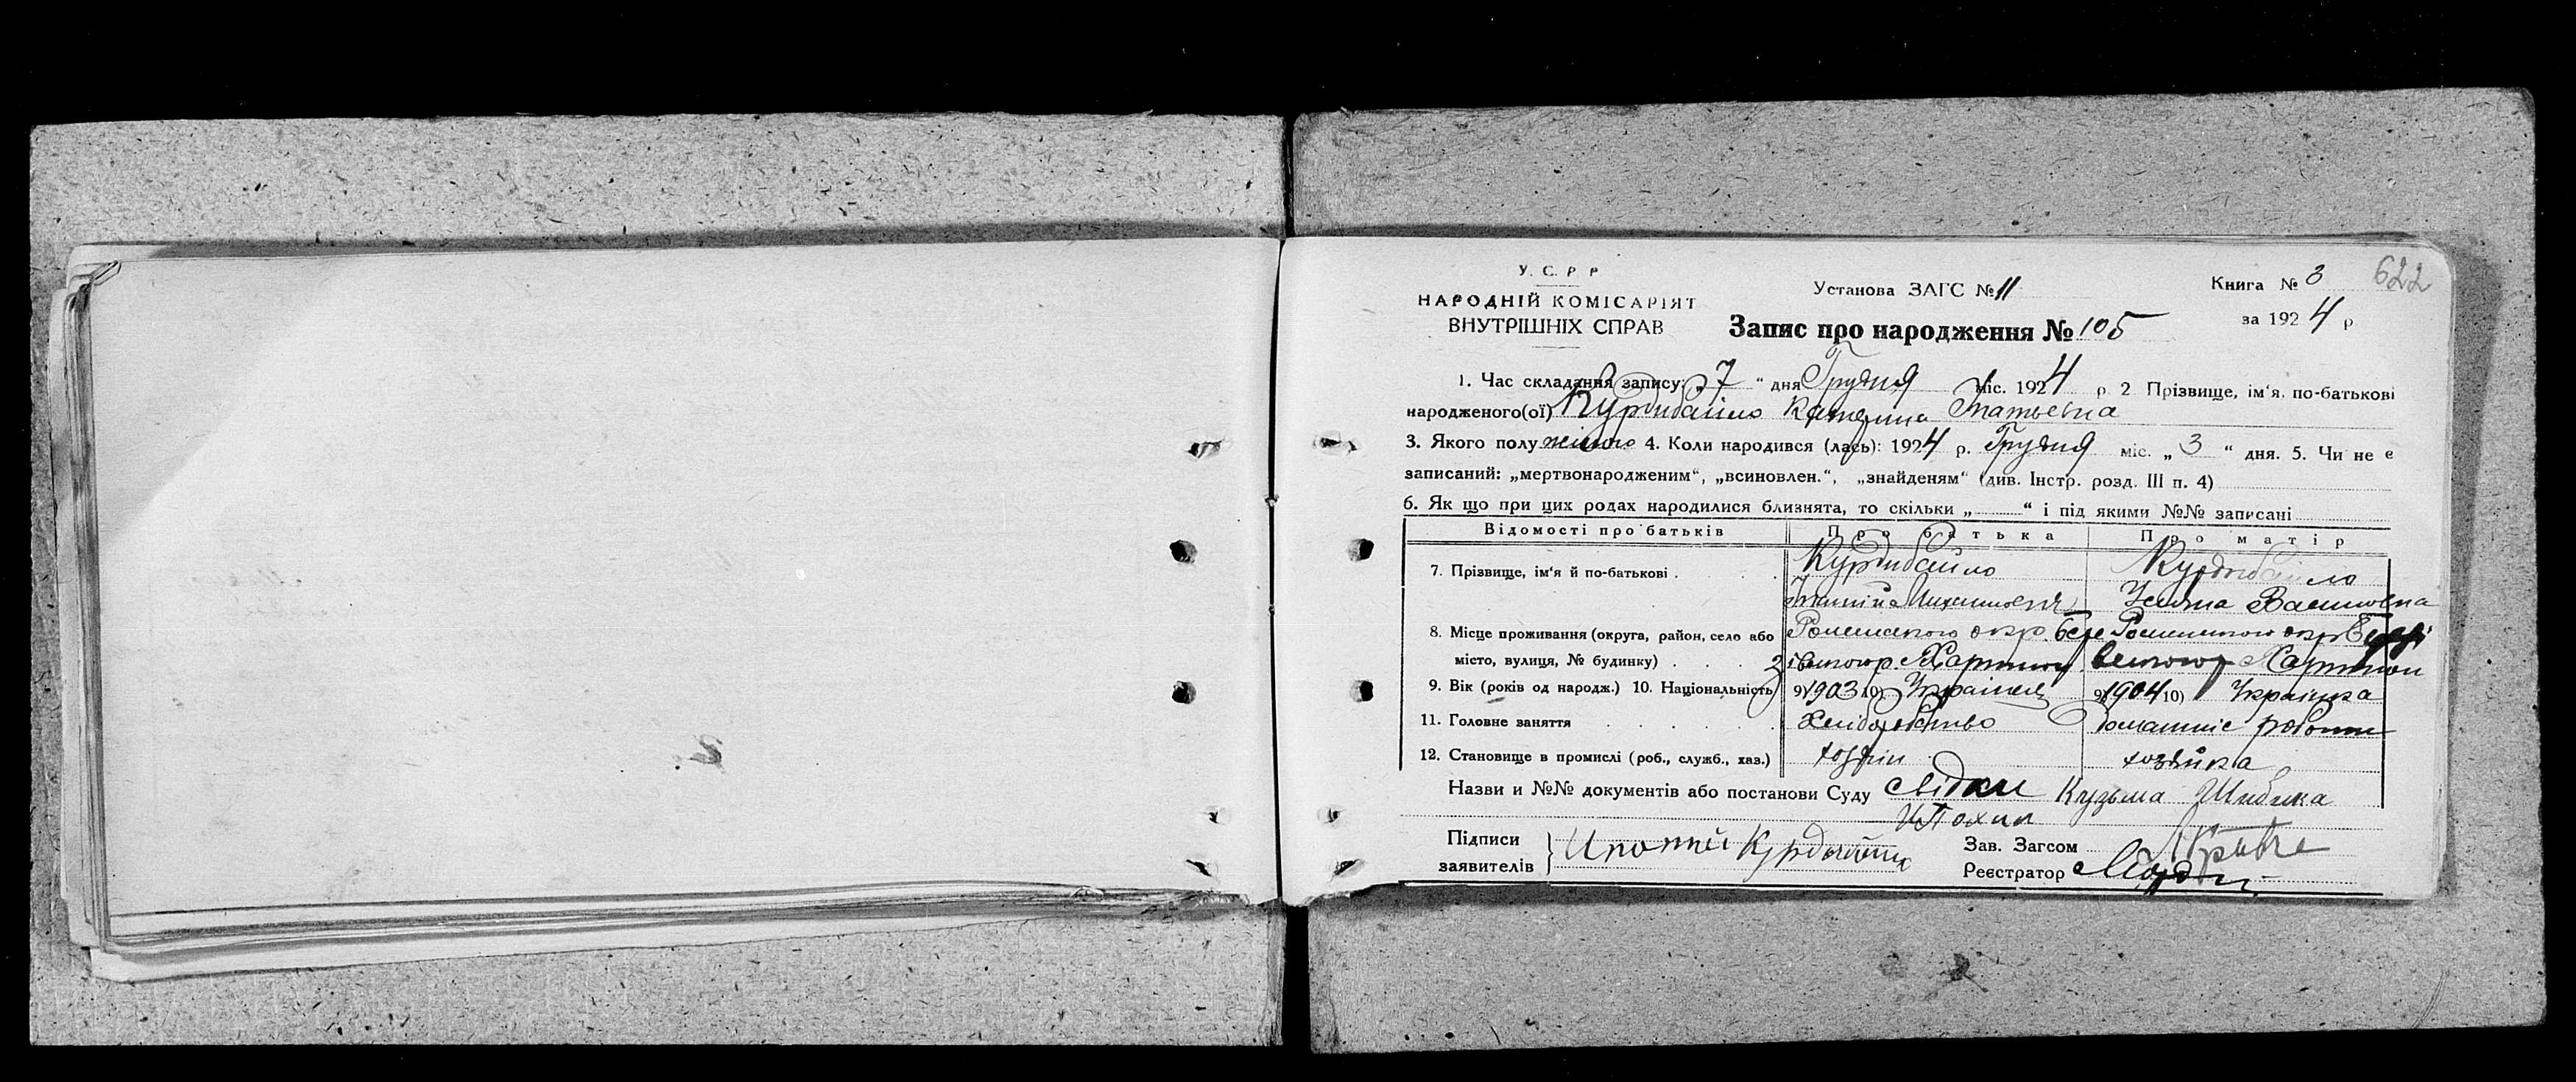 У. С. Р Р
НАРОДНІЙ КОМІСАРІЯТ
ВНУТРІШНІХ СПРАВ
Установа ЗАГС № 11
Книга № 3
622
за 1924 р
Запис про народження № 105
1. Час складання запису: „7“ дня Грудня міс. 1924 р 2 Прізвище, ім‘я, по-батькові
народженого(ої) Курдибайло Катерина Гнатьевна
3. Якого полу жіного 4. Коли народився (лась): 1924 р. Грудня міс. „3“ дня. 5. Чи не є
записаний: „мертвонародженим“, „всиновлен.“, „знайденям“ (див. Інстр. розд. III п. 4)
6. Як що при цих родах народилися близнята, то скільки „ “ і під якими №№ записані
Відомості про батьків Про батька Про матір
7. Прізвище, ім‘я й по-батькові . Курдибайло Курдибайло
Уляна Василовна
8. Місце проживання (округа, район, село або Роменського окр. Роменського окр
місто, вулиця, № будинку)
9. Вік (років од народж.) 10. Національність 9) 1903 10) Українець 9) 1904 10) Українка
11. Головне заняття Хліборобство домашніе роботи
12. Становище в промислі (роб., служб., хаз.) хозяін хозяйка
Назви и №№ документів або постанови Суду свідки Кузьма Шибика
Підписи
заявителів
Зав. Загсом
Реєстратор